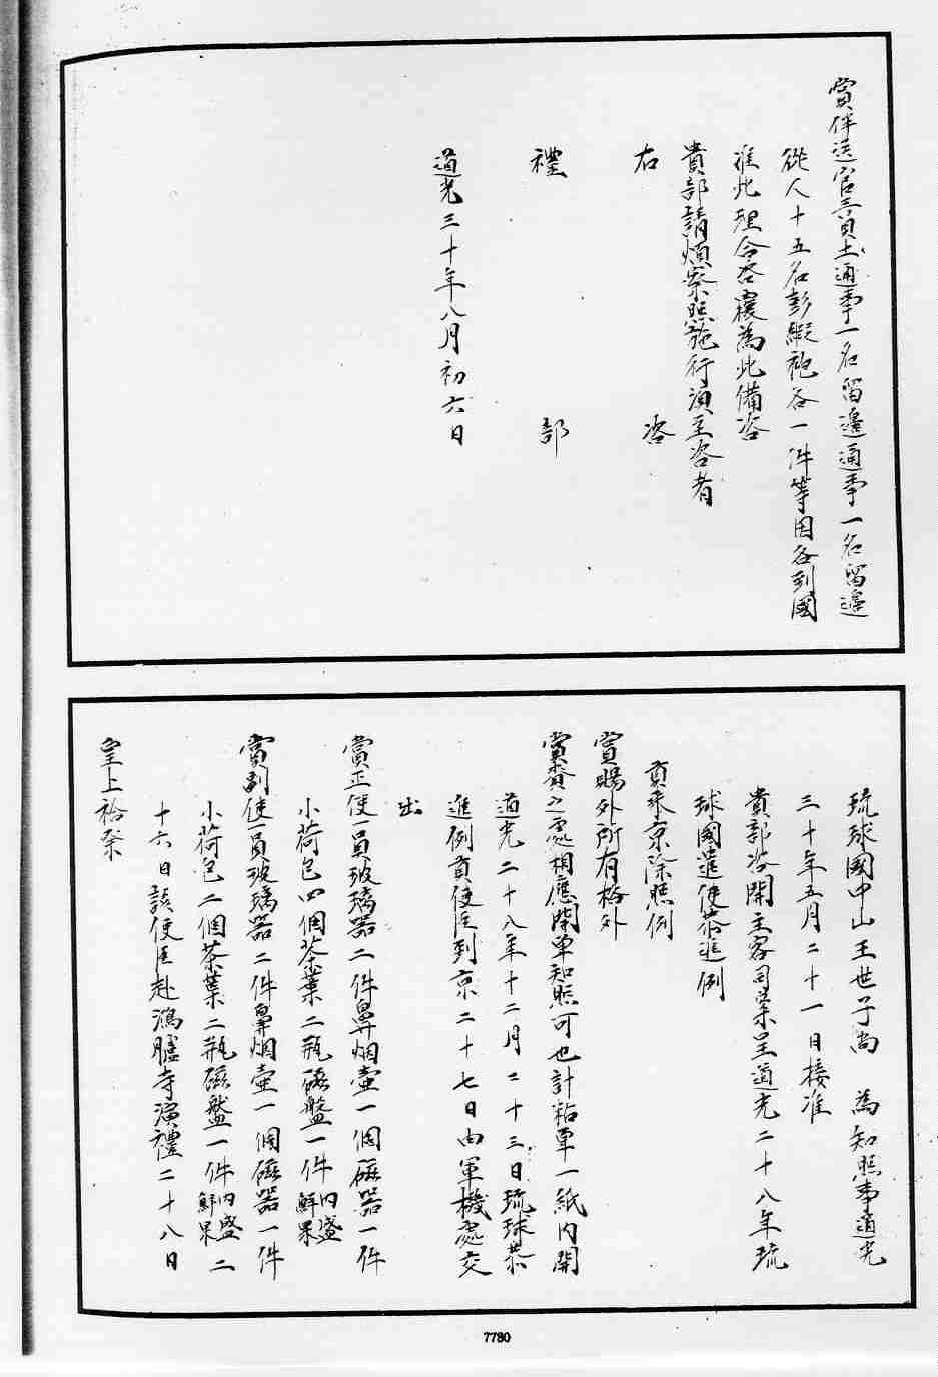 賞伴送官三員土通事一名留邊通事一名留邊
從人十五名彭緞袍各一件等因各到國
准此理合咨覆為此備咨
貴部請煩察照施行須至咨者
右　咨
禮　部
道光三十年八月初六日
琉球國中山王世子尚　為知照事道光
三十年五月二十一日接准
貴部咨開主客司案呈道光二十八年琉
球國遣使恭進例
貢來京除照例
賞賜外所有格外
賞賚之處相應開單知照可也計粘單一紙內開
道光二十八年十二月二十三日琉球恭
進例貢使臣到京二十七日由軍機處交
出
賞正使一員玻璃器二件鼻烟壺一個磁器一件
小荷包四個茶葉二瓶磁盤一件內盛鮮果
賞副使一員玻璃器二件鼻烟壺一個磁器一件
小荷包二個茶葉二瓶磁盤一件內盛鮮果二
十六日該使臣赴鴻臚寺演禮二十八日
皇上祫祭
7780